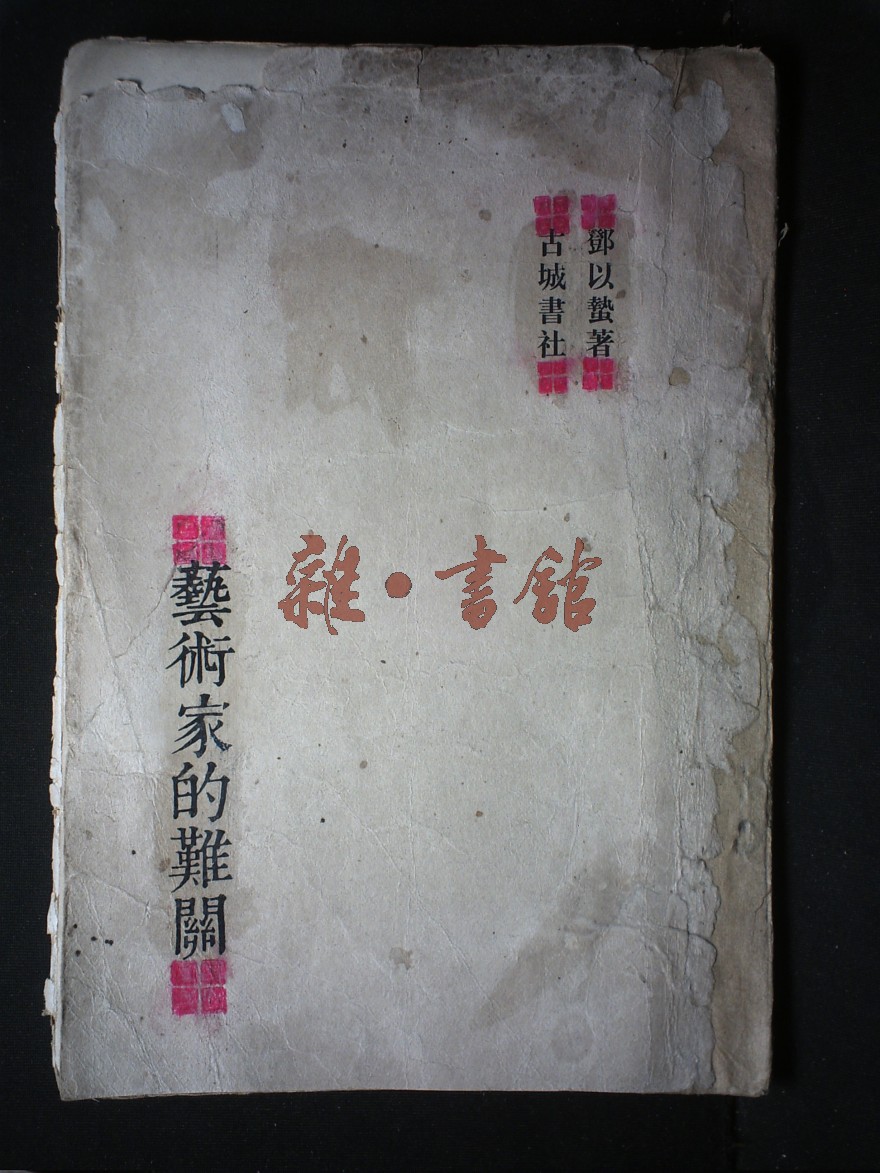 鄧以蟄著
古城書社
雜·書館
藝術家的難關